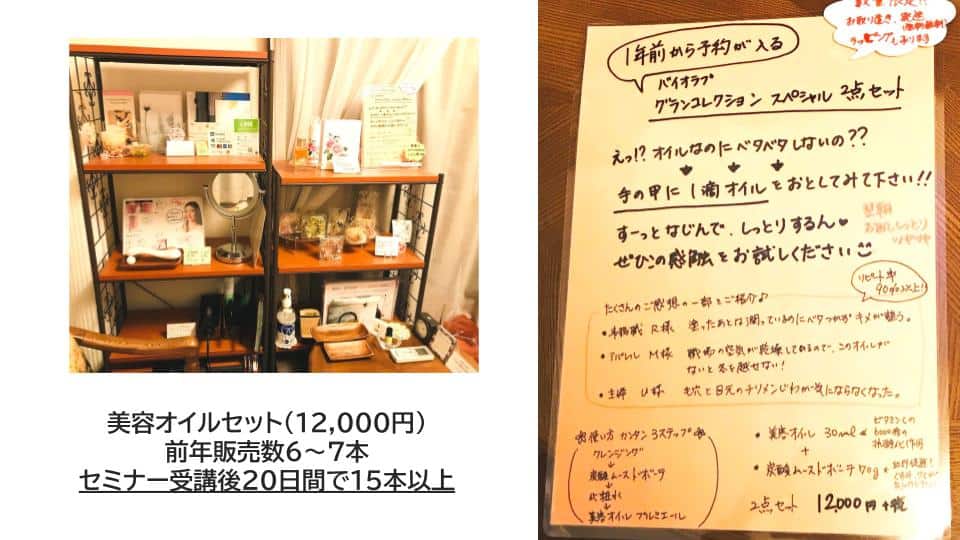 美容オイルセット（12,000円）
前年販売数6～7本
セミナー受講後20日間で15本以上
お取り置き、発送
ラッピングも承ります
1年前から予約が入る
バイオラブ
グランコレクション スペシャル 2点セット
えっ!? オイルなのにベタベタしないの??
手の甲に1滴オイルをおとしてみて下さい!!
すーっとなじんで、しっとりするん♥
ぜひこの感触をお試しください
翌朝
お肌しっとり
ツヤツヤ
リピート率
90%以上!!
たくさんのご感想の一部をご紹介♪
R様 塗ったあとは潤っているのにベタつかずキメが整う。
・アパレル M様 職場の空気が乾燥してるので、このオイルが
ないと冬を越せない！
・主婦 U様 毛穴と目元のチリメンじわが気にならなくなった。
使い方 カンタン 3ステップ
クレンジング
↓
炭酸ムースドボーテ
↓
化粧水
↓
美容オイル プルミエール
・美容オイル 30ml
ビタミンCの
+
・炭酸ムースドボーテ 70g
2点セット 12,000円+税